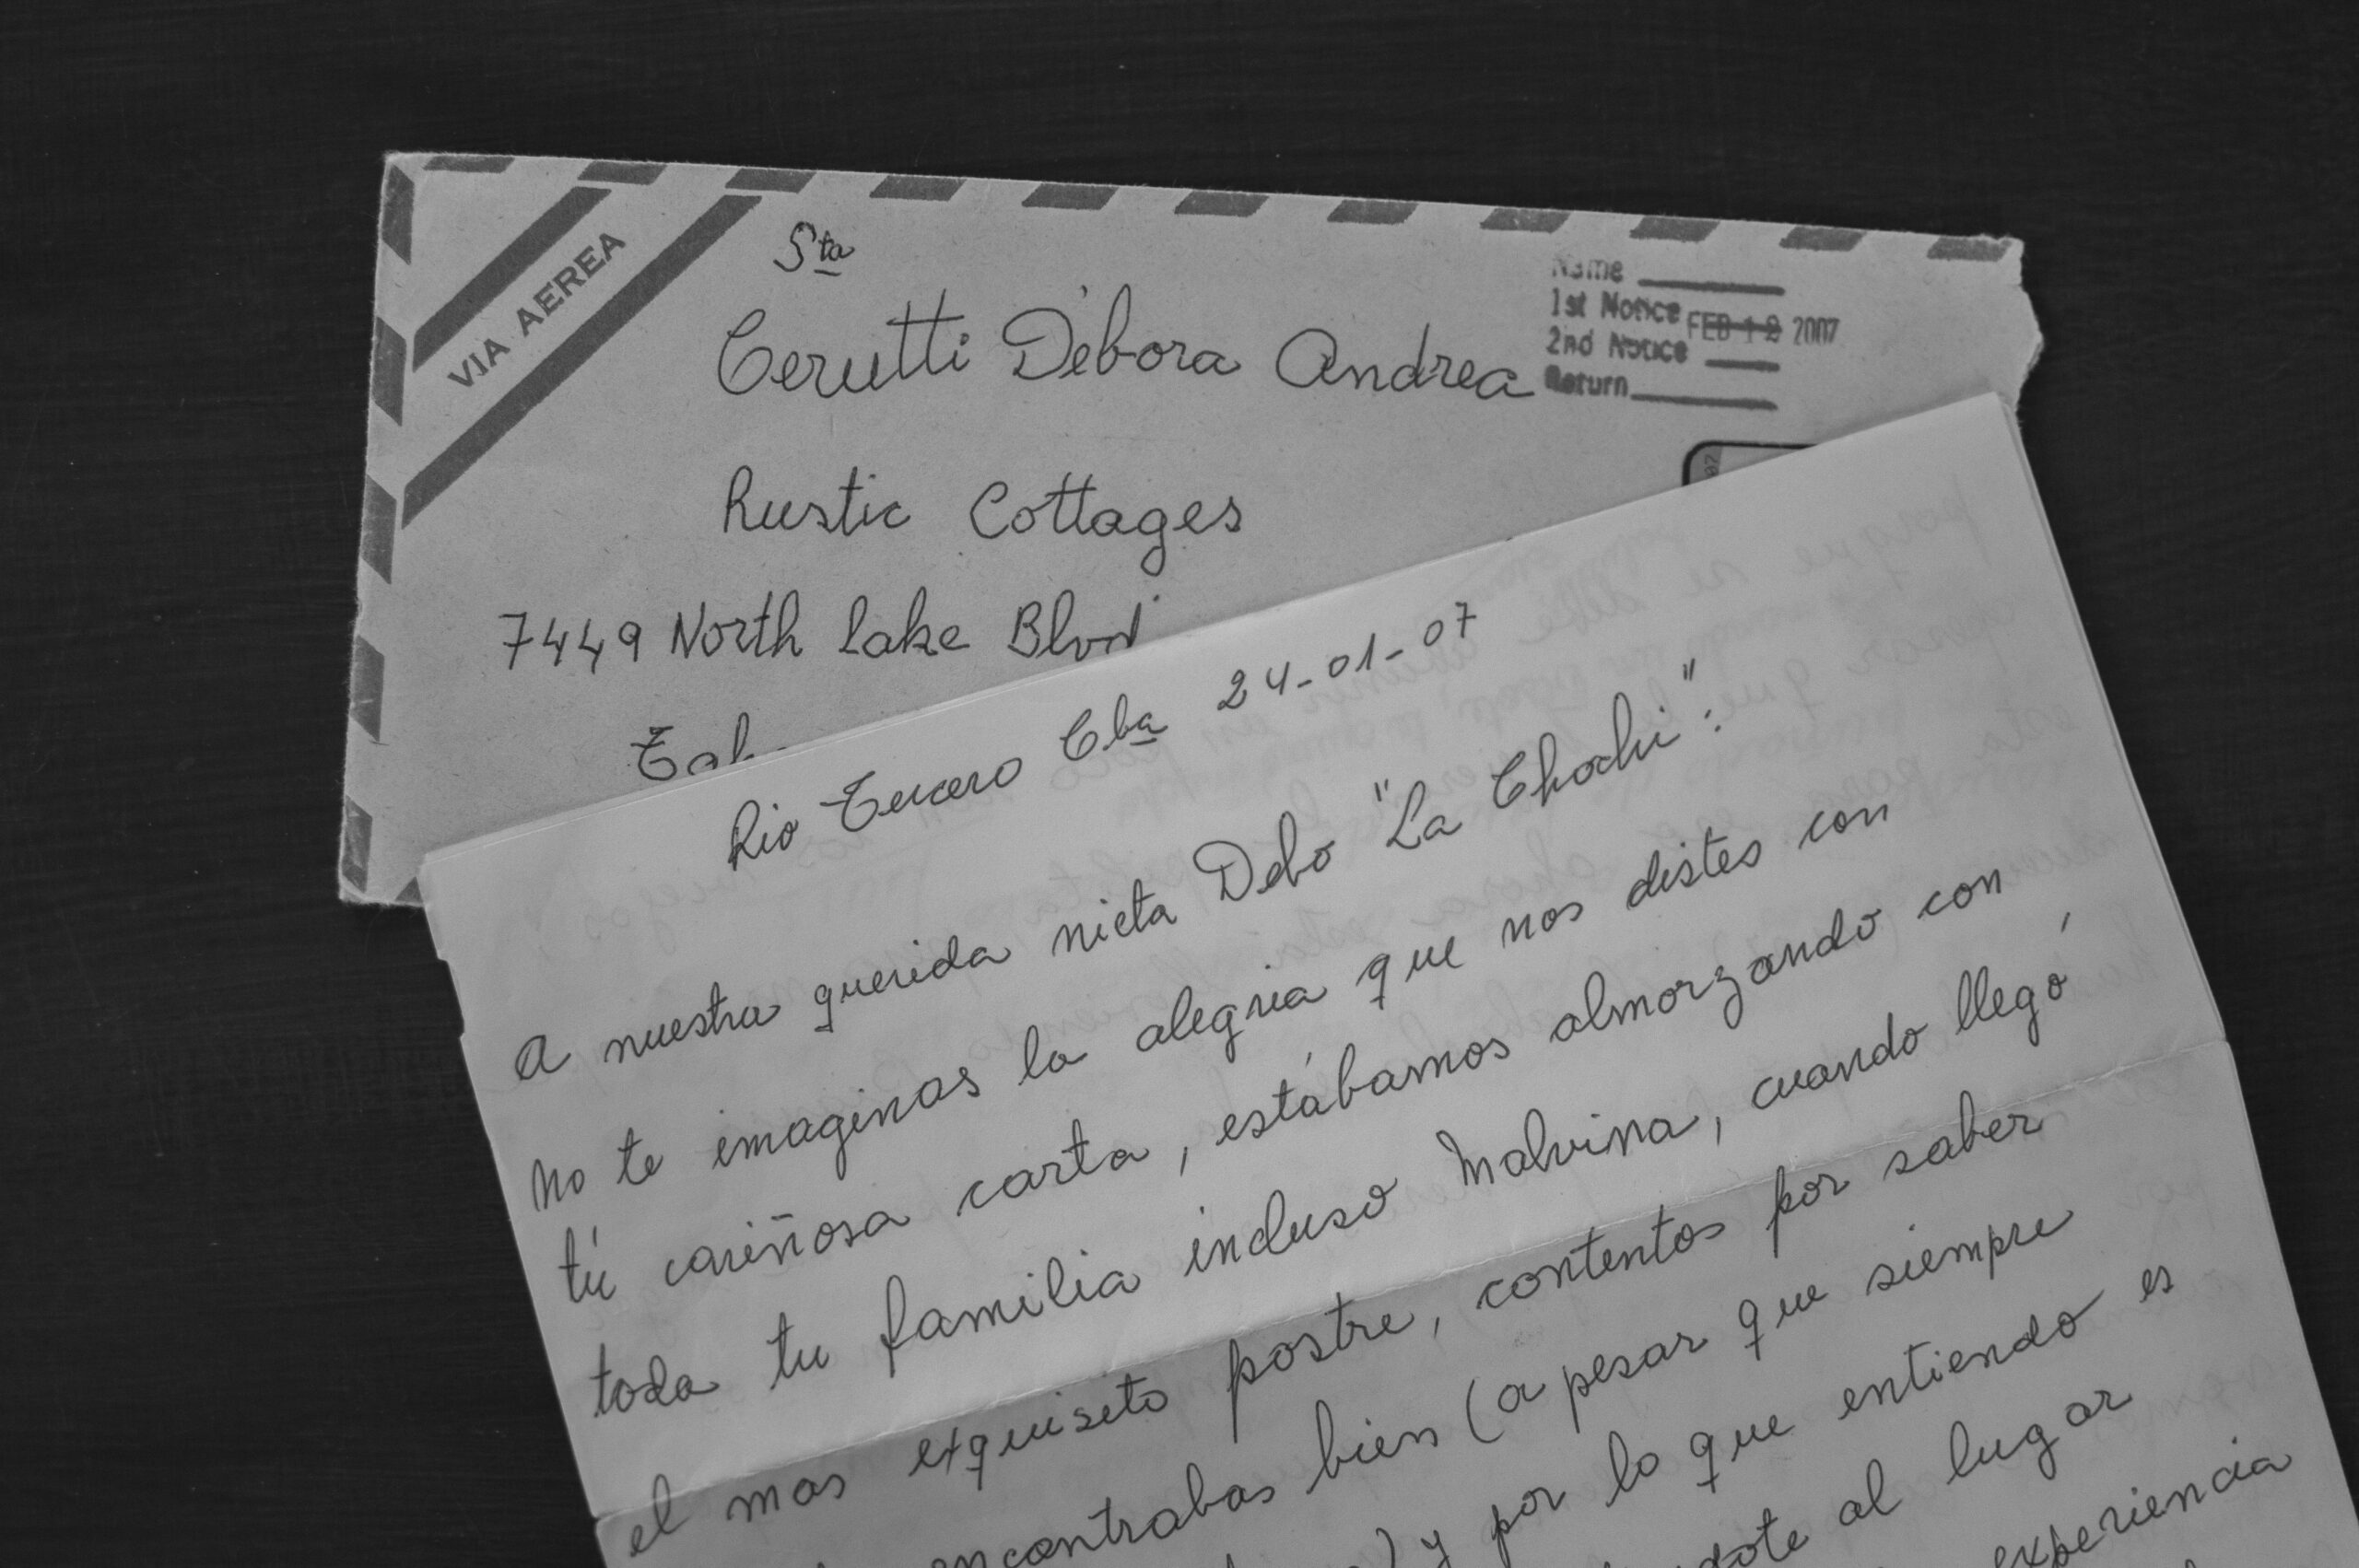 VIA AEREA
Sta
Cerutti Débora Andrea
Name
1st Notice FEB 12 2007
2nd Notice
Return
Rustic Cottages
07
7449 North Lake Blvd
Rio Tercero Cba 24-01-07
A nuestra querida nieta Debo "La Chochi":
No te imaginas la alegria que nos distes con
tú cariñosa carta, estábamos almorzando con
toda tu familia incluso Malvina, cuando llegó
el mas exquisito postre, contentos por saber
encontrabas bien (a pesar que siempre
) y por lo que entiendo es
al lugar
experiencia